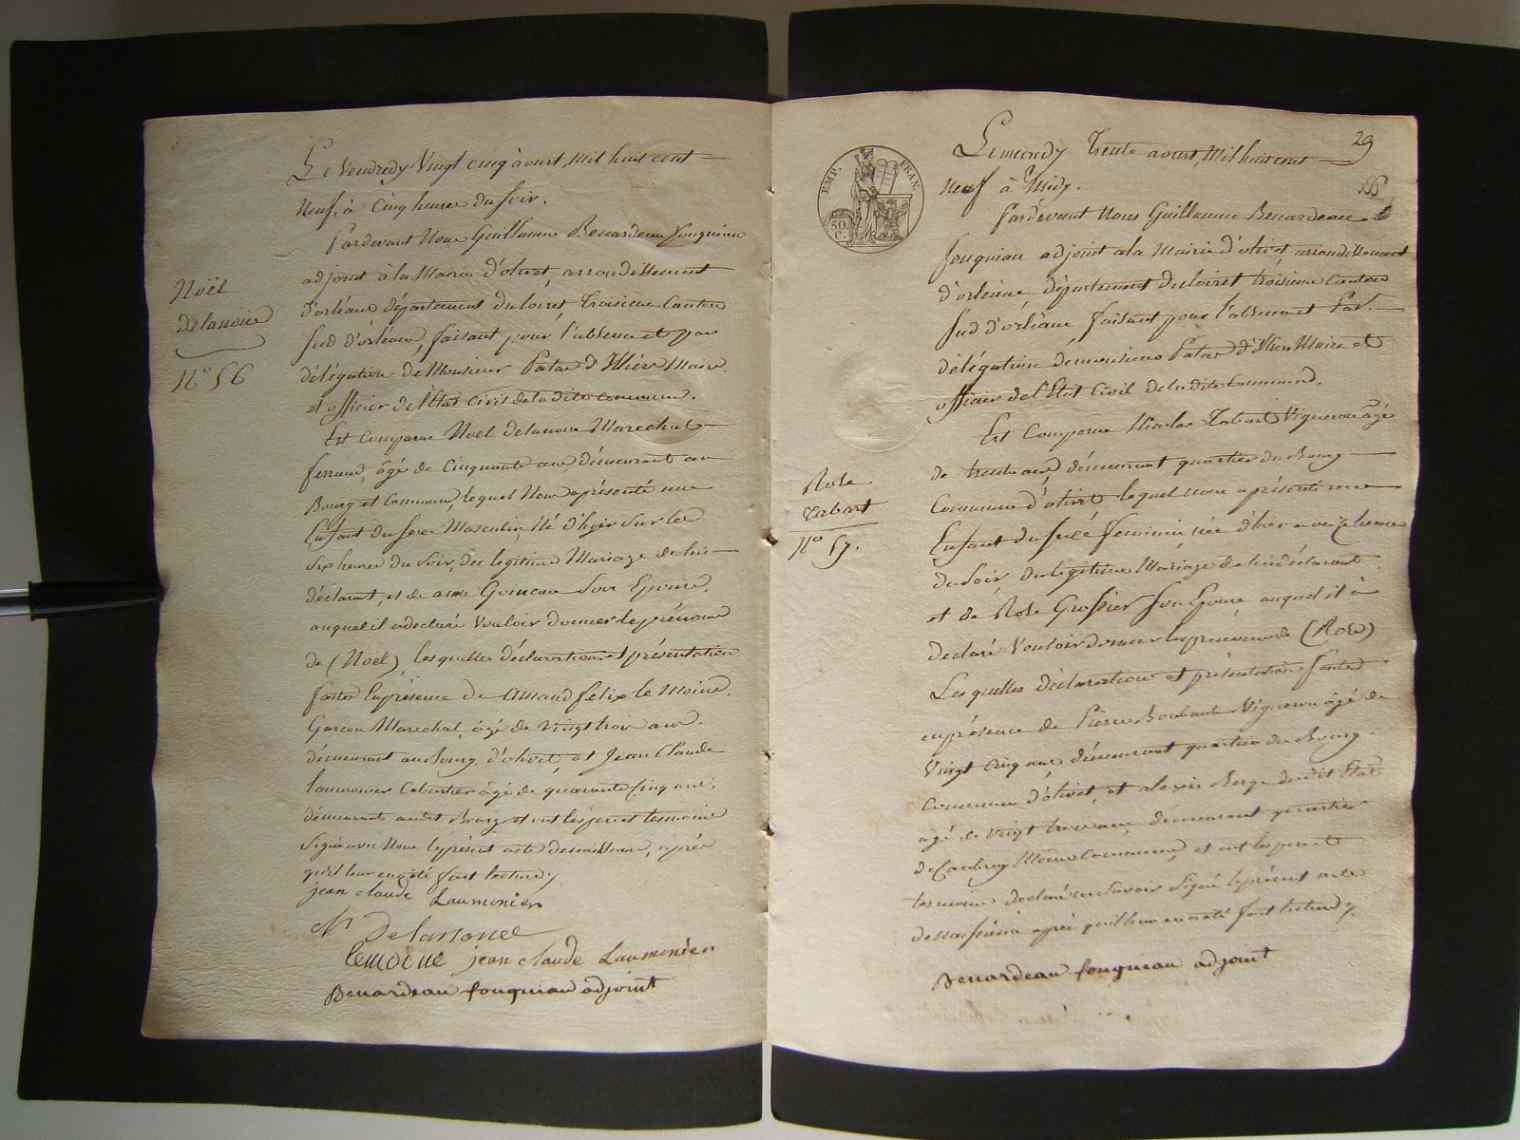 Noël
Delanoue
N° 56
Le Vendredy Vingt cinq aoust, mil huit cent
Neuf, à cinq heures du Soir.
Pardevant Nous Guillaume Benardeau fouqniau
adjoint à la Mairie d'olivet, arrondissement
d'orléans département du loiret Troisieme Canton
Sud d'orléans, faisant pour l'absence et par
délégation de Monsieur Patas d'Illiers Maire
et officier de l'état Civil de la dite commune.
Est Comparu Noël Delanoue Marechal
ferrand, âgé de Cinquante ans démeurant au
Bourg et Commune, lequel Nous a présenté un
Enfant du sexe Masculin, Né d'hyer Sur les
Six heures du Soir, du legitime Mariage de lui
déclarant, et de anne Goineau Son Epouse,
auquel il a declaré Vouloir donner le prénom
de (Noël) lesquelles déclaration et présentation
faites En présence de Amand felix le Moine
Garcon Marechal, âgé de Vingt trois ans
démeurant au Bourg d'olivet, et Jean Claude
Laumonier Cabaretier âgé de quarante Cinq ans
démeurant audit Bourg et ont les pere et temoins
Signé avec Nous le présent acte de naissance, après
qu'il leur en a été fait lecture
jean claude Laumonier
N Delanoue
Lemoine jean claude Laumonier
Benardeau fouqniau adjoint
29
EMP. FRAN.
50 C.
Rose
Tabart
N° 57.
Le mercredy Trente aoust, Mil huit cent
Neuf à Midy.
Pardevant Nous Guillaume Benardeau
fouqniau adjoint a la Mairie d'olivet arrondissement
d'orléans département du loiret troisieme Canton
Sud d'orléans faisant pour l'absence et Par
délégation de monsieur Patas d'Illiers Maire et
officier de l'Etat Civil de la dite Commune.
Est Comparu Nicolas Tabart Vigneron âgé
de trente ans, démeurant quartier du Bourg
Commune d'olivet lequel nous a présenté un
Enfant du sexe féminin née d'hier a onze heures
du Soir du legitime Mariage de lui déclarant
et de Rose Grossier Son Epouse auquel il a
declaré Vouloir donner le prénom de (Rose)
Les quelles déclaration et présentation faites
en présence de Pierre Vigneron âgé de
Vingt Cinq ans, démeurant quartier du Bourg
Commune d'olivet, et alexis Berge dudit Etat
agé de Vingt trois ans, démeurant quartier
de Même Commune, et ont les pere et
temoins declaré ne Savoir Signé le présent acte
de naissance après qu'il leur en a été fait lecture
Benardeau fouqniau adjoint